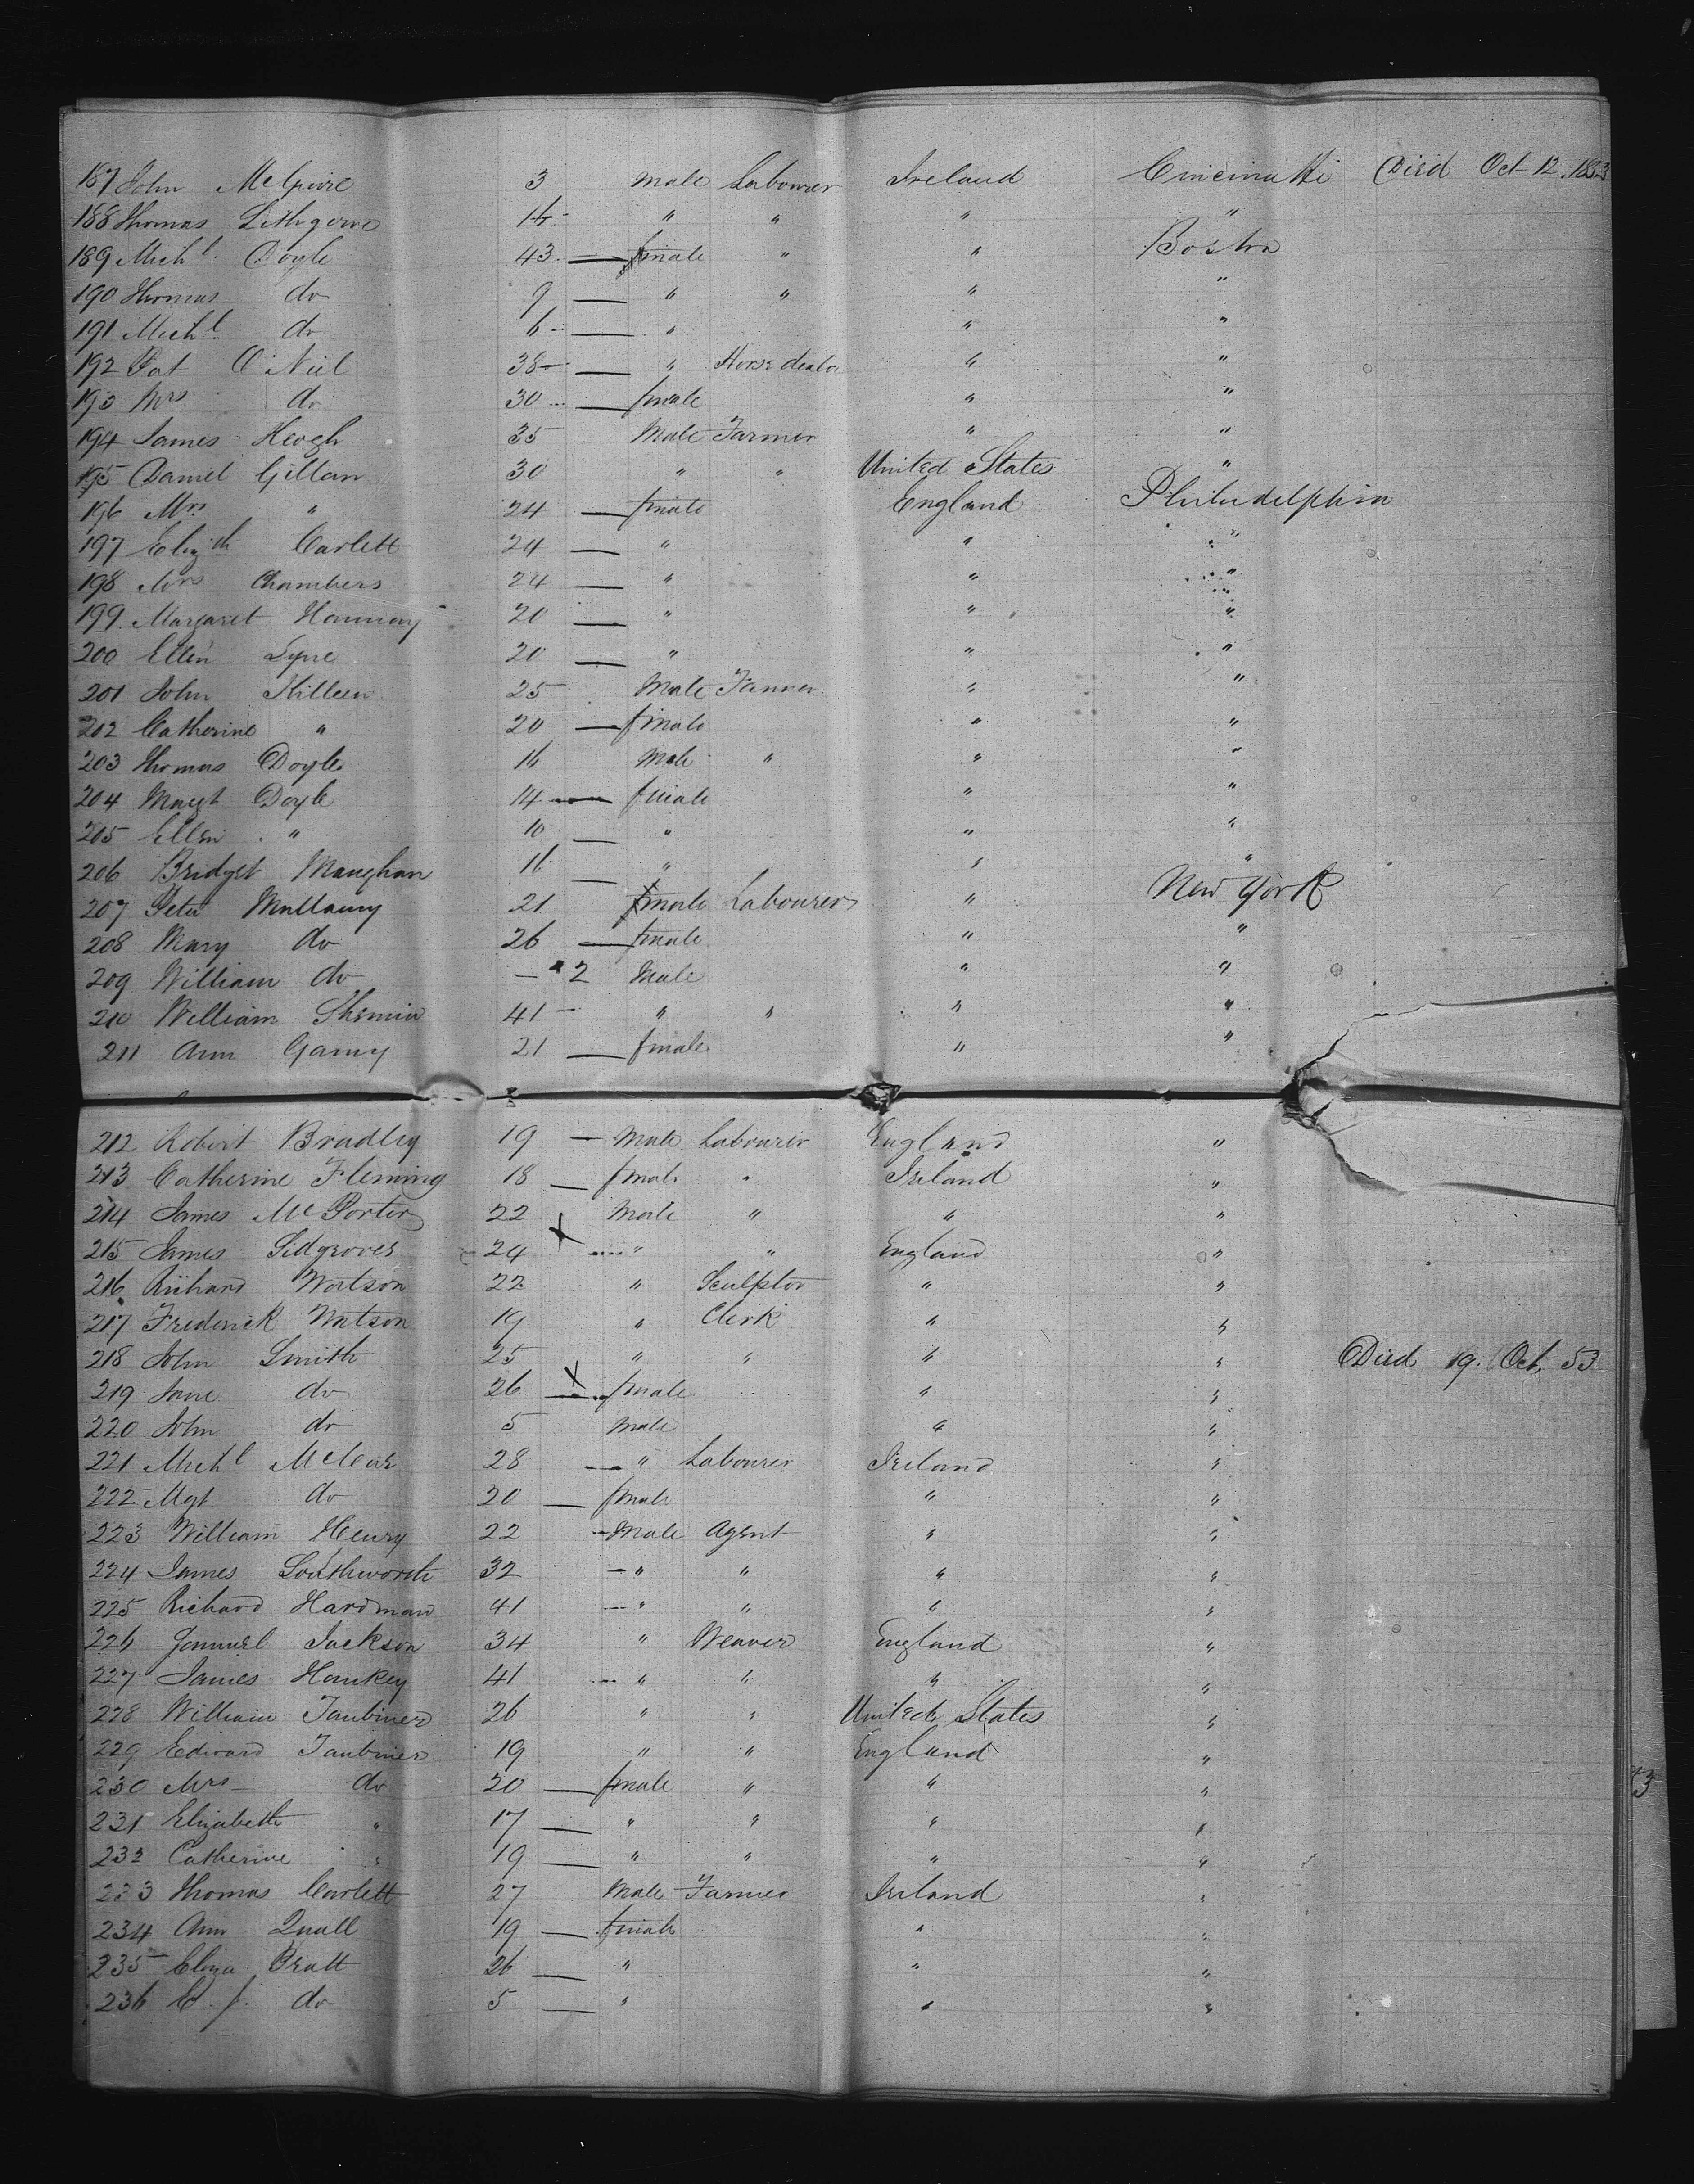 187 John McGuire 3 Male Labourer Ireland Cincinatti Died Oct 12. 1853
188 Thomas Lithgowe 14 " " " "
189 Michl. Doyle 43 — female " " Boston
190 Thomas do 9 — " " " "
191 Michl. do 6 — " " "
192 Pat O'Neil 38 — " Horse dealer " "
193 Mrs do 30 — female " "
194 James Keogh 35 Male Farmer " "
195 Daniel Gillan 30 " " United States "
196 Mrs " 24 — female England Philadelphia
197 Elizth Carlett 24 — " " "
198 Mrs Chambers 24 — " " "
199 Margaret Hannay 20 — " " "
200 Ellen Lyne 20 — " " "
201 John Killeen 25 Male Farmer " "
202 Catherine " 20 — female " "
203 Thomas Doyle 16 Male " " "
204 Margt Doyle 14 — female " "
205 Ellen " 10 — " " "
206 Bridget Maughan 16 — " " "
207 Peter Mullany 21 male Labourer " New York
208 Mary do 26 — female " "
209 William do — 2 Male " "
210 William 41 — " " " "
211 Ann 21 — female " "
212 Robert Bradley 19 — Male Labourer England "
213 Catherine Fleming 18 — female " Ireland "
214 James McPorter 22 Male " " "
215 James Sidgroves 24 " " England "
216 Richard Watson 22 " Sculptor " "
217 Frederick Watson 19 " Clerk " "
218 John Smith 25 " " " " Died 19. Oct, 53
219 Jane do 26 — female " "
220 John do 5 Male " "
221 Michl 28 — " Labourer Ireland "
222 Mgt do 20 — female " "
223 William Henry 22 — Male Agent " "
224 James Southworth 32 — " " " "
225 Richard Hardman 41 — " " " "
226 Samuel Jackson 34 " Weaver England "
227 James Hankey 41 — " " " "
228 William Taubiner 26 " " United States "
229 Edward Taubiner 19 " " England "
230 Mrs do 20 — female " " "
231 Elizabeth " 17 — " " " "
232 Catherine " 19 — " " " "
233 Thomas Carlett 27 Male Farmer Ireland "
234 Ann Quall 19 — female " "
235 Eliza Pratt 26 — " " "
236 E. J. do 5 — " " "
3